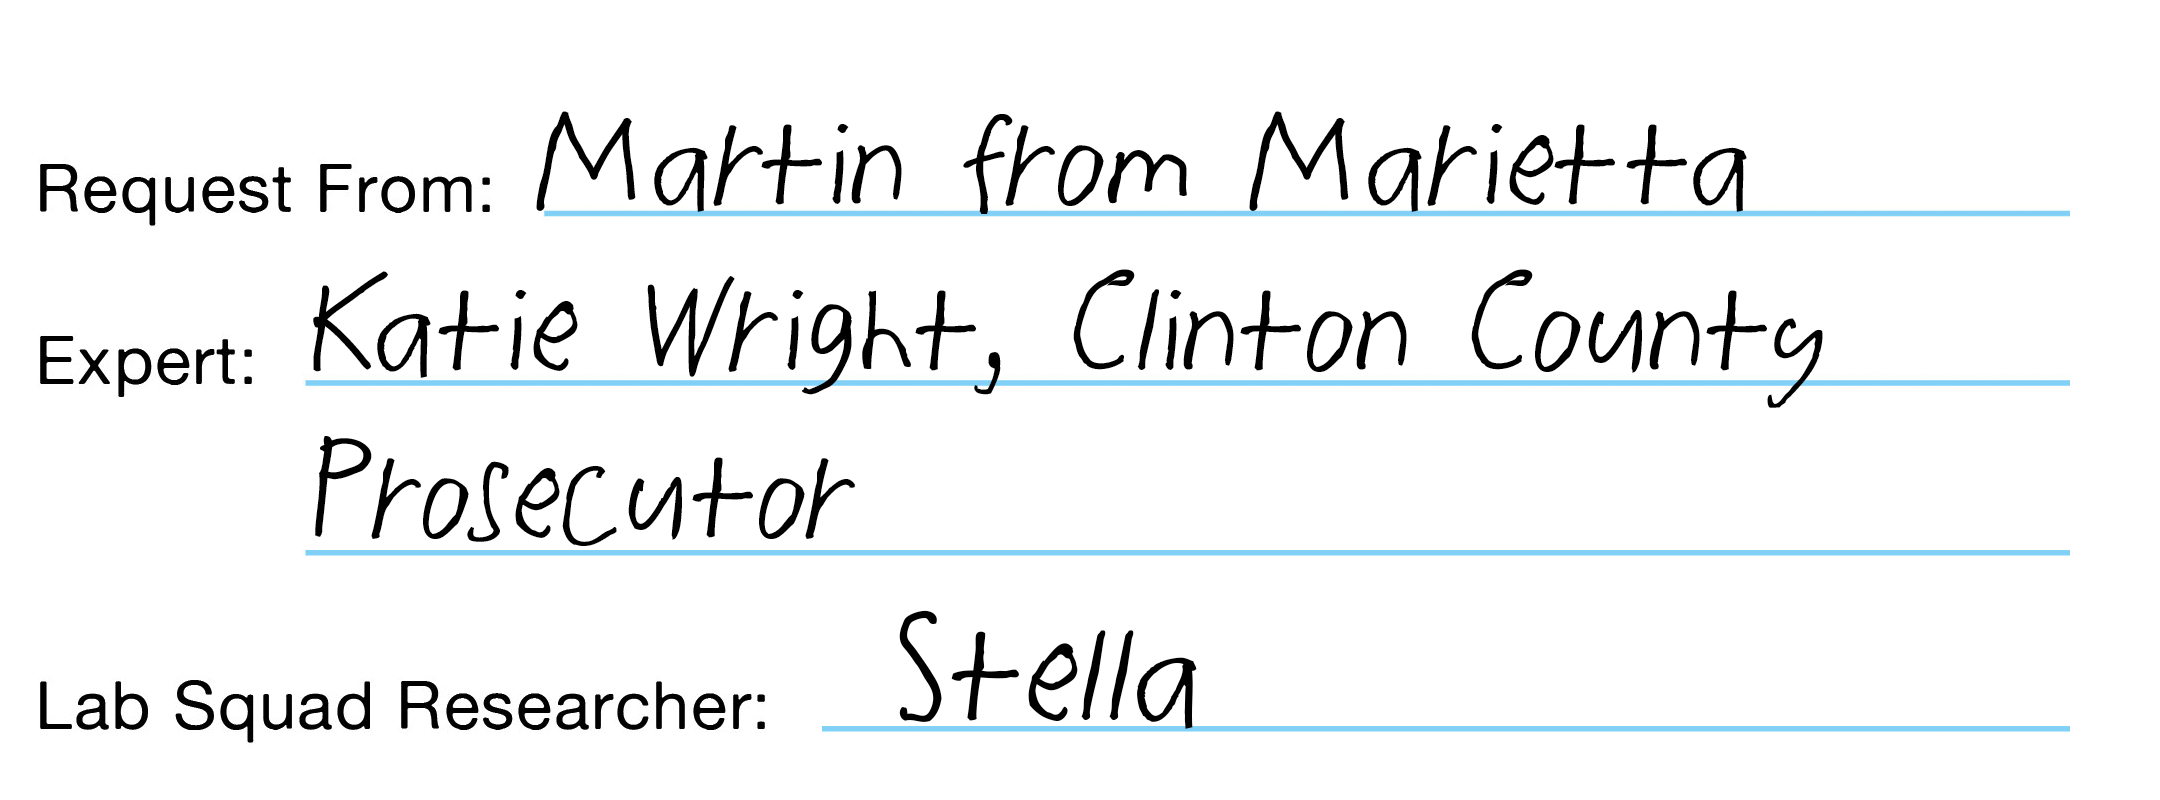 Request From: Martin from Marietta
Expert: Katie Wright, Clinton County
Prosecutor
Lab Squad Researcher: Stella